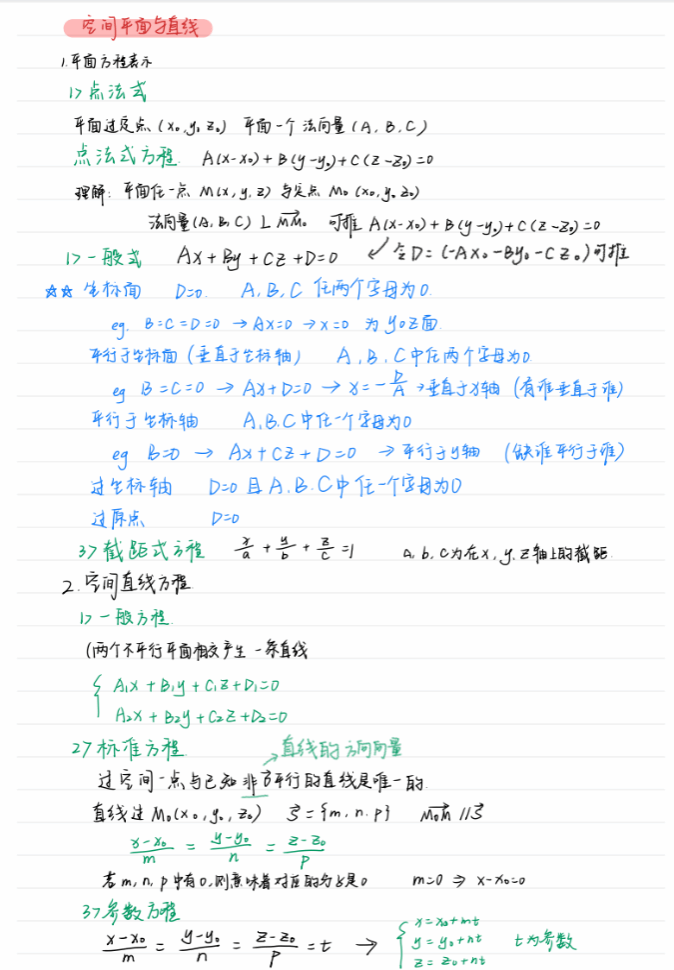 空间平面与直线
1.平面方程表示
1> 点法式
平面过定点 (x₀, y₀, z₀) 平面一个法向量 (A, B, C)
点法式方程 A(x-x₀)+B(y-y₀)+C(z-z₀)=0
理解: 平面任一点 M(x, y, z) 与定点 M₀ (x₀, y₀, z₀)
法向量(A, B, C) ⊥ MM₀ 可推 A(x-x₀)+B(y-y₀)+C(z-z₀)=0
1> 一般式 Ax+By+Cz+D=0 ↙ 令D=(-Ax₀-By₀-Cz₀)可推
☆☆ 坐标面 D=0. A, B, C 任两个字母为0.
eg. B=C=D=0 → Ax=0 → x=0 为 y0z面.
平行于坐标面 (垂直于坐标轴) A, B, C中任两个字母为0
eg B=C=0 → Ax+D=0 → x=-D/A → 垂直于x轴 (有谁垂直于谁)
平行于坐标轴 A.B.C中任一个字母为0
eg B=0 → Ax+Cz+D=0 → 平行于y轴 (缺谁平行于谁)
过坐标轴 D=0 且 A.B.C中任一个字母为0
过原点 D=0
3> 截距式方程 x/a + y/b + z/c =1 a, b, c为在x, y, z轴上的截距.
2. 空间直线方程.
1> 一般方程.
(两个不平行平面相交产生一条直线
{ A₁x+B₁y+C₁z+D₁=0
A₂x+B₂y+C₂z+D₂=0
2> 标准方程. ↗ 直线的方向向量
过空间一点与已知非0平行的直线是唯一的.
直线过 M₀(x₀, y₀, z₀) s={m, n, p} M₀M // s
x-x₀/m = y-y₀/n = z-z₀/p
若 m, n, p 中有0, 则意味着对应的分子是0 m=0 ⇒ x-x₀=0
3> 参数方程
x-x₀/m = y-y₀/n = z-z₀/p = t → { x=x₀+mt
y=y₀+nt t为参数
z=z₀+nt